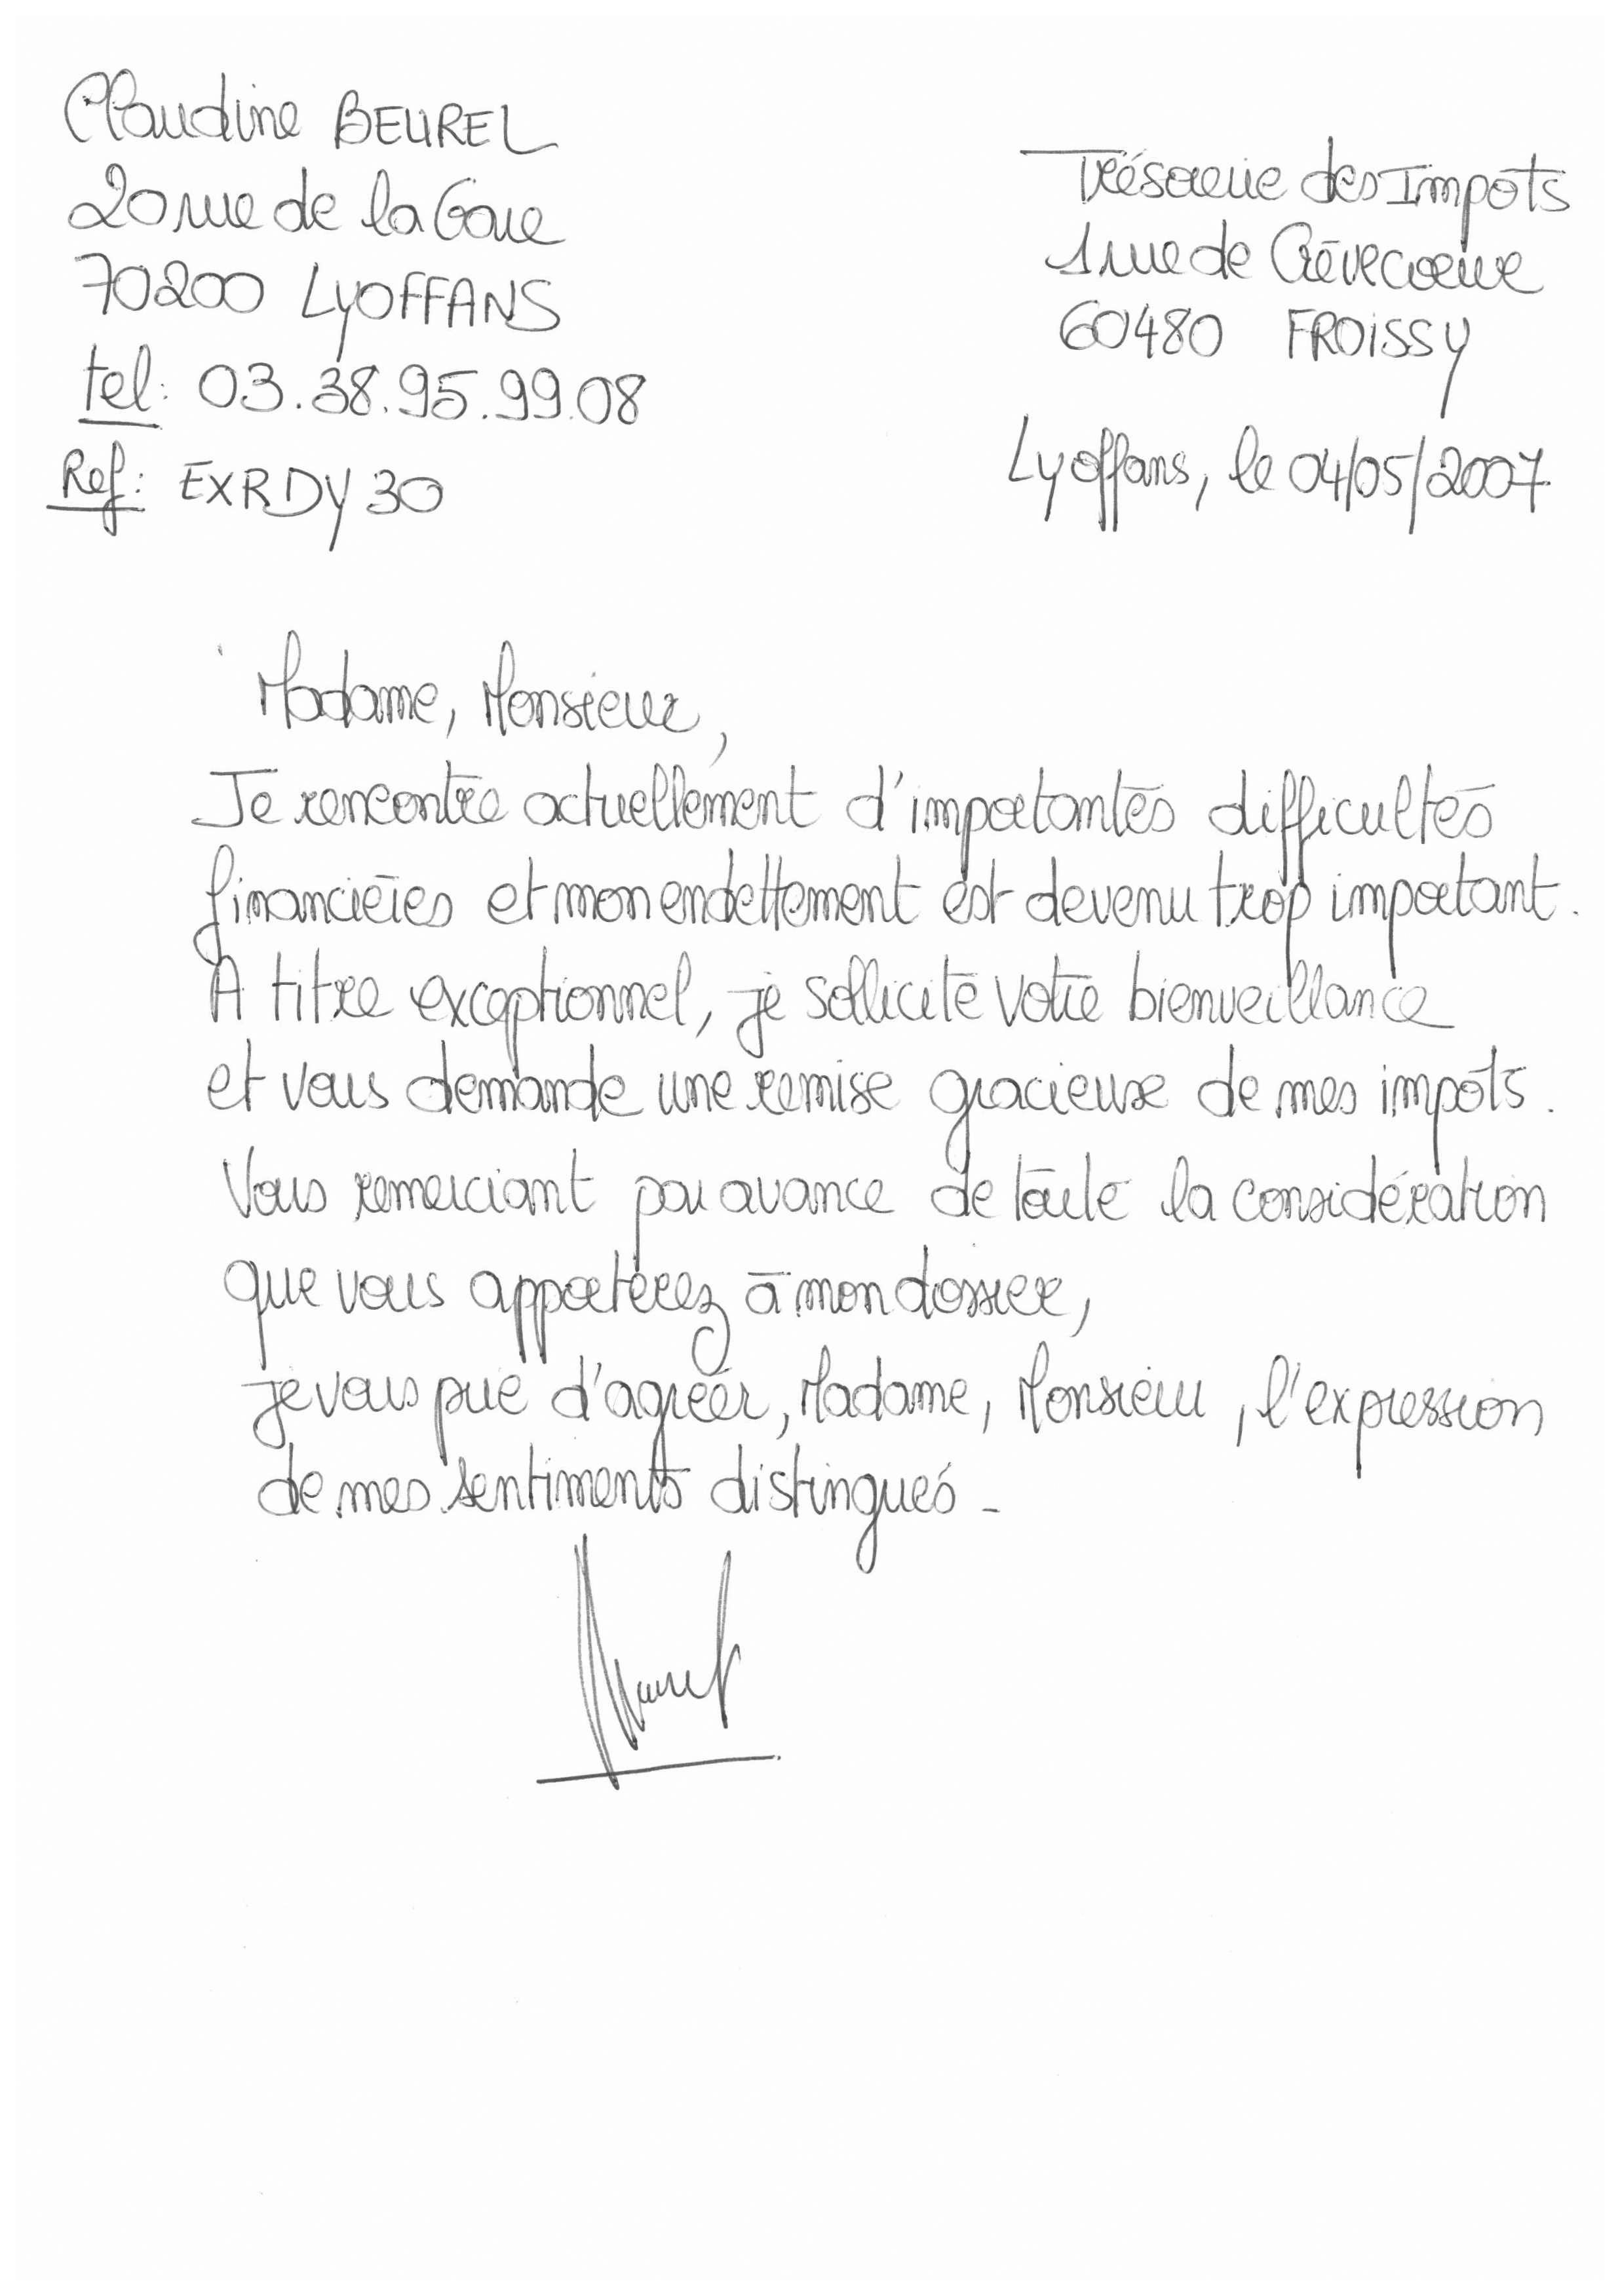 Claudine BEUREL
20 rue de la Gare
70200 LYOFFANS
tel: 03.38.95.99.08
Ref: EXRDY30
Trésorerie des Impôts
1 rue de Crèvecoeur
60480 FROISSY
Lyoffans, le 04/05/2007
Madame, Monsieur,
Je rencontre actuellement d'importantes difficultés
financières et mon endettement est devenu trop important.
A titre exceptionnel, je sollicite votre bienveillance
et vous demande une remise gracieuse de mes impôts.
Vous remerciant par avance de toute la considération
que vous apporterez à mon dossier,
je vous prie d'agréer, Madame, Monsieur, l'expression
de mes sentiments distingués -